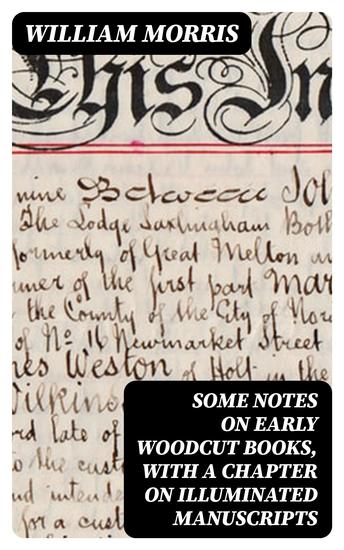 WILLIAM MORRIS
This In
nine Between Joh
The Lodge Saxlingham Both
formerly of Great Melton an
of the first part Mar
the County of the City of Nor
of No 16 Newmarket Street
Weston of Holt in the
Wilkins
late of
to the cust
intende
for a cust
SOME NOTES
ON EARLY
WOODCUT BOOKS,
WITH A CHAPTER
ON ILLUMINATED
MANUSCRIPTS